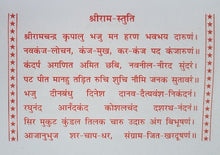 श्रीराम-स्तुति
श्रीरामचन्द्र कृपालु भजु मन हरण भवभय दारुणं।
नवकंज-लोचन, कंज-मुख, कर-कंज पद कंजारुणं॥
कंदर्प अगणित अमित छबि, नवनील-नीरद सुंदरं।
पट पीत मानहु तड़ित रुचि शुचि नौमि जनक सुतावरं॥
भजु दीनबंधु दिनेश दानव-दैत्यवंश-निकंदनं।
रघुनंद आनँदकंद कोशलचंद दशरथ-नंदनं॥
सिर मुकुट तिलक चारु उदारु अंग बिभूषणं।
आजानुभुज शर-चाप-धर, संग्राम-जित-खरदूषणं॥